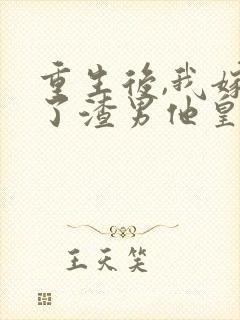 重生後,我嫁
了渣男他皇
王天笑